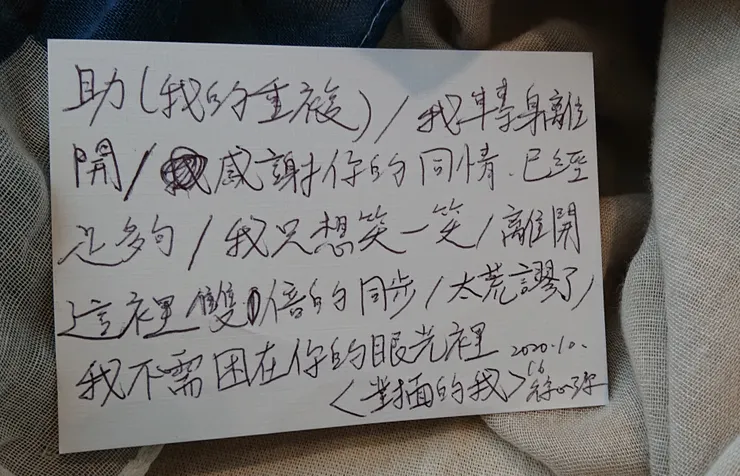 助(我的重複)/我轉身離
開/感謝你的同情.已經
足夠/我只想笑一笑/離開
這裡雙倍的同步/太荒謬了/
我不需困在你的眼光裡 2020.10.
16
<對面的我>